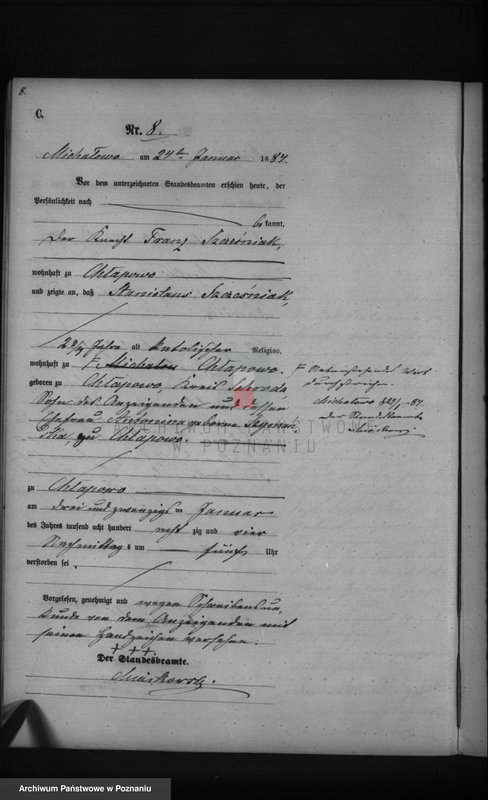 8.
C.
Nr. 8.
Michalowo am 24ten Januar 1884.
Vor dem unterzeichneten Standesbeamten erschien heute, der
Persönlichkeit nach
bekannt,
der Knecht Franz Szcześniak,
wohnhaft zu Chlapowo
und zeigte an, daß Stanislaus Szcześniak,
alt katolischer Religion,
wohnhaft zu Michalow Chlapowo.
geboren zu Chlapowo, Kreis Schroda
Sohn des Anzeigenden und dessen
Ehefrau Antonina geborne
zu Chlapowo.
zu Chlapowo
am drei und zwanzigsten Januar
des Jahres tausend acht hundert acht zig und vier
Nachmittags um fünf Uhr
verstorben sei.
Vorgelesen, genehmigt und wegen Schreibensun-
kunde von dem Anzeigenden mit
seinen Handzeichen versehen.
+++
Der Standesbeamte.
Nebenstehendes Wort
durchstrichen.
Michalowo 24/1. 84.
der Standesbeamte
ARCHIWUM PAŃSTWOWE
W POZNANIU
Archiwum Państwowe w Poznaniu